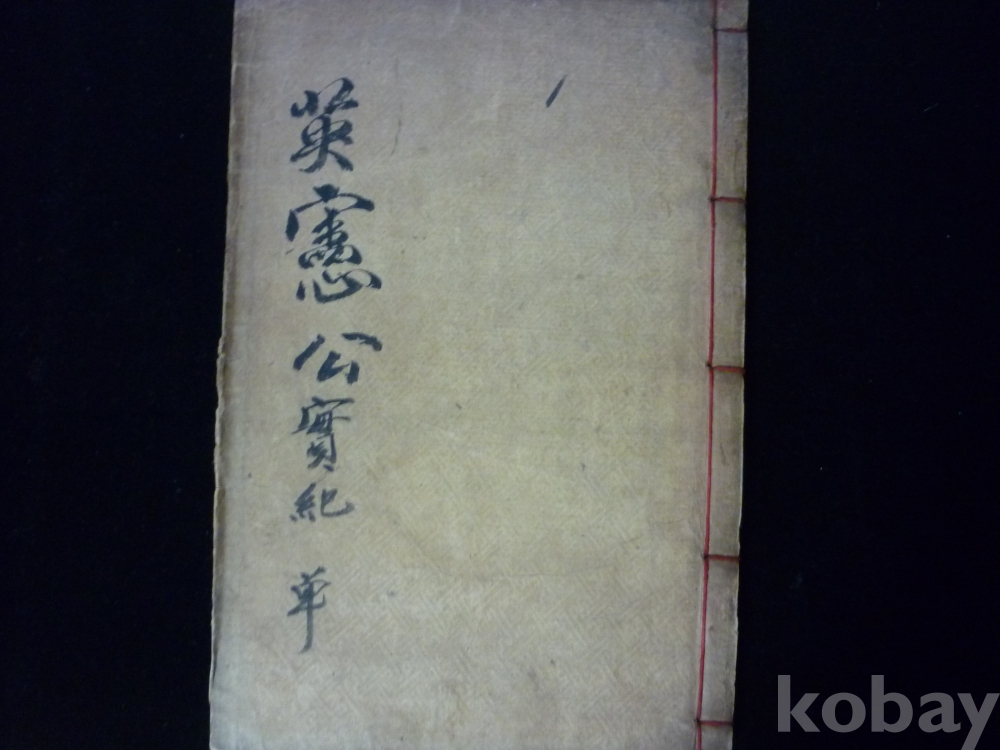 英憲公實紀 單
kobay